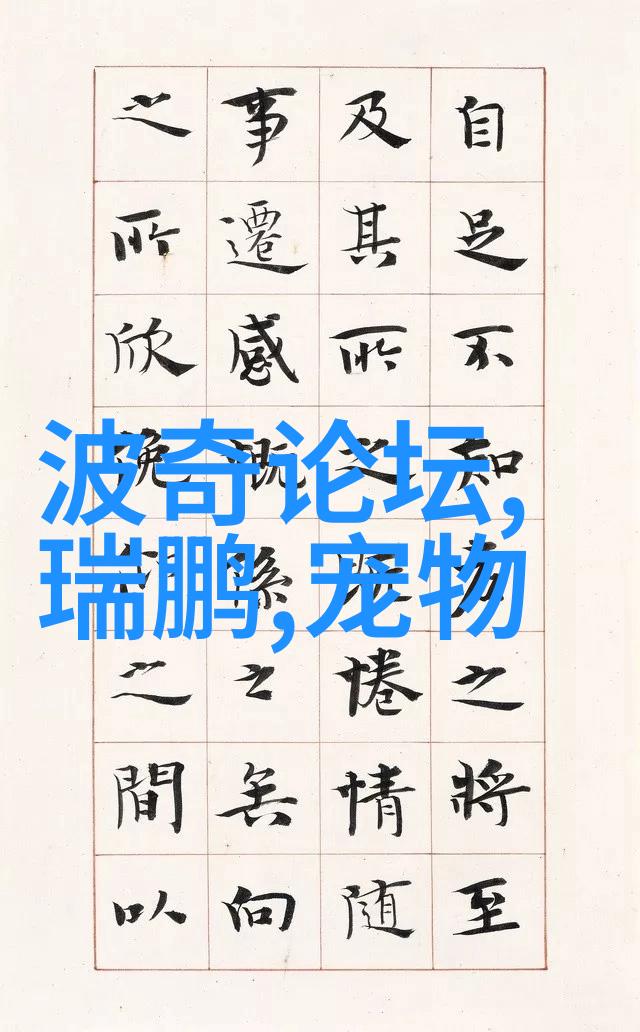 波奇论坛,
瑞鹏,宠物
自足不知之將至
及其所之惓情隨
事遷感慨係之矣向
之所欣俛之間以